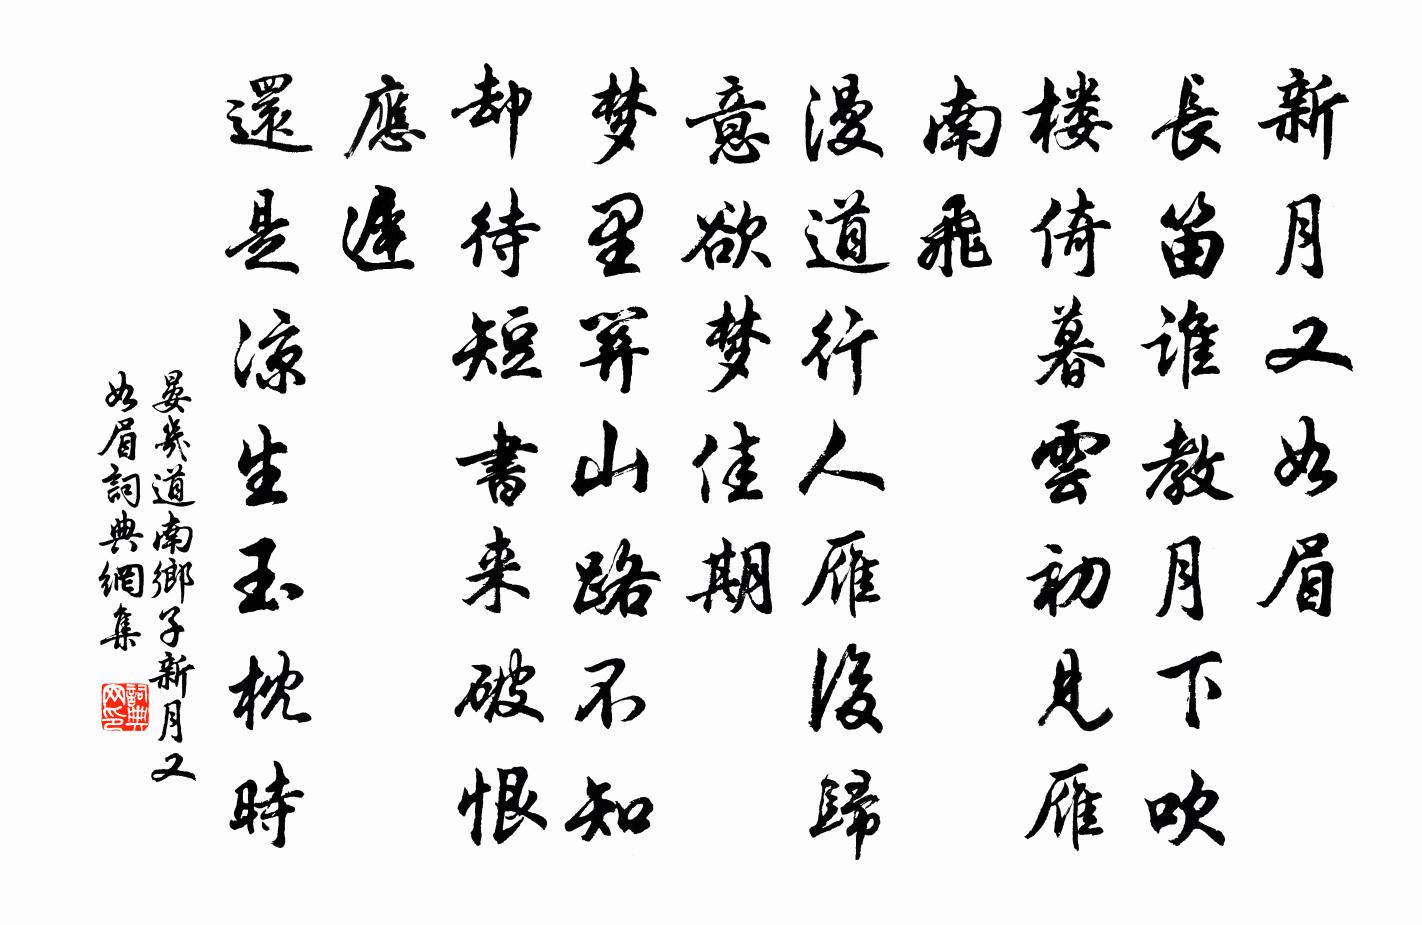 新月又如眉
長笛誰教月下吹
楼倚暮雲初見雁
南飛
漫道行人雁後歸
意欲梦佳期
梦里関山路不知
却待短書来破恨
應遲
還是涼生玉枕時
晏幾道南鄉子新月又
如眉詞典網集
詞典
网印